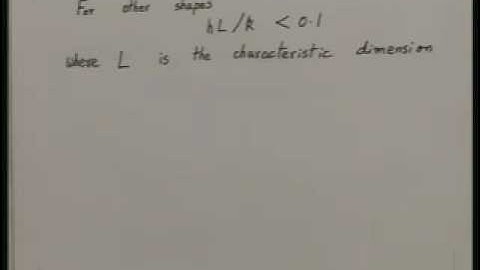 For other shapes
hL/k < 0.1
where L is the characteristic dimension